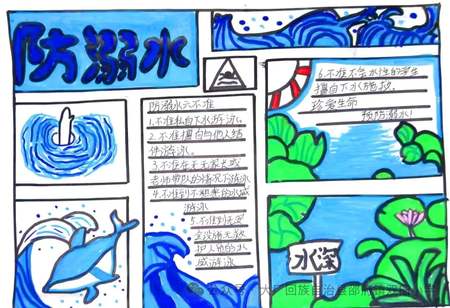 防溺水
防溺水六不准
1.不准私自下水游泳。
2.不准擅自与他人结
伴游泳。
3.不准在无家长或
老师带队的情况下游泳
4.不准到不熟悉的水域
游泳
5.不准到无安
全设施无救
护人员的水
域游泳
6.不准不会水性的学生
擅自下水施救。
珍爱生命
预防溺水!
水深
公众号
回族自治县